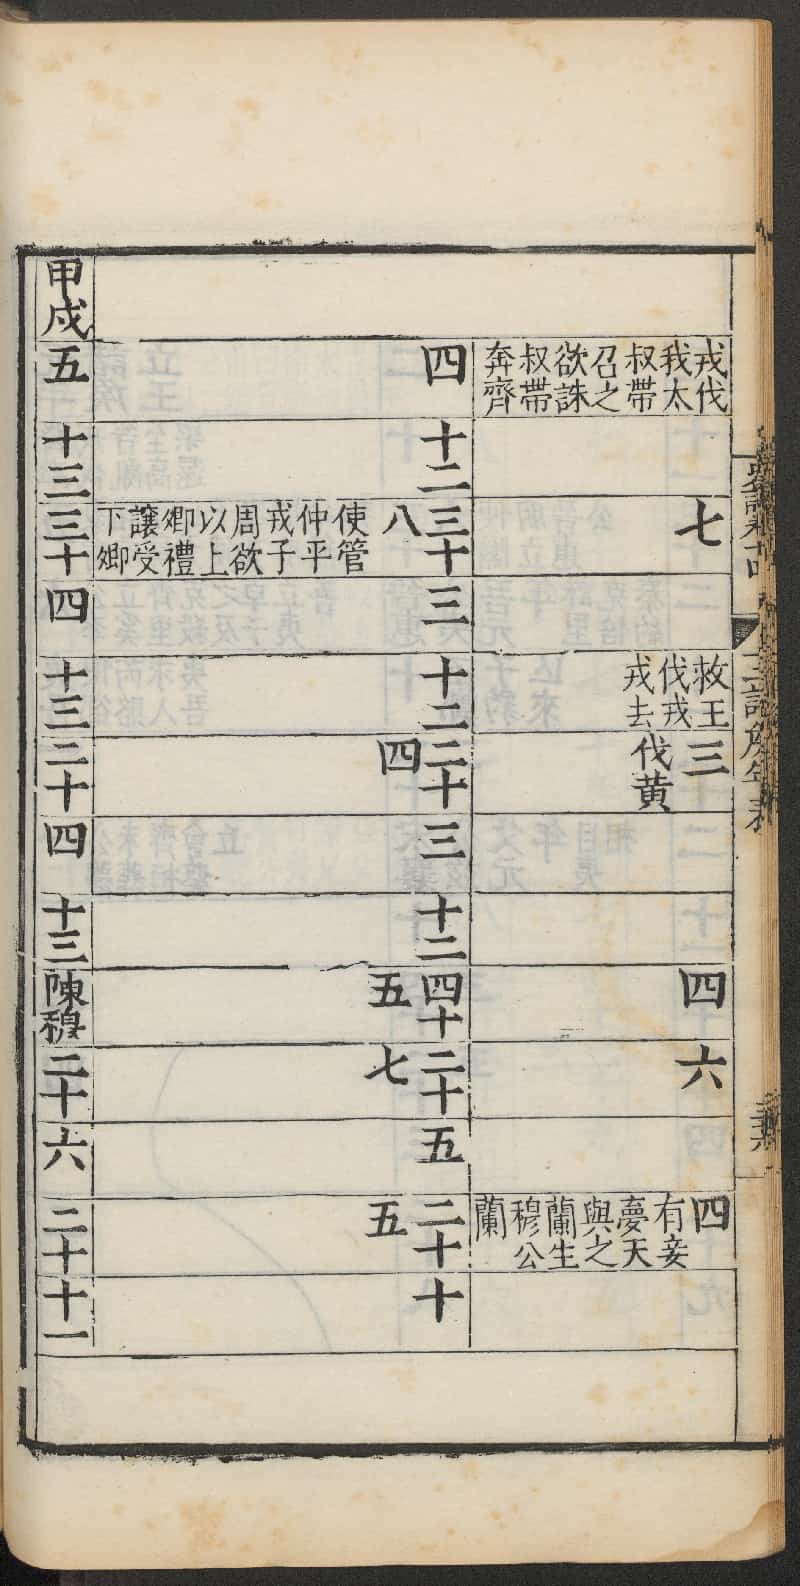 史記卷十四
十二諸侯年表
戎伐
我太
叔帶
召之
欲誅
叔帶
奔齊
七
救王
伐戎
戎去
三
伐黃
四
六
四
有妾
夢天
與之
蘭生
穆公
蘭
四
十二
三十
八
使管
仲平
戎子
周欲
以上
卿禮
讓受
下卿
三
十二
二十
四
三
十二
四十
五
二十
七
五
二十
五
十
甲戌
五
十三
三十
四
十三
二十
四
十三
陳穆
二十
六
二十
十一